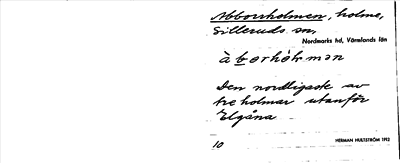 Abborrholmen, holme,
Silleruds sn,
Nordmarks hd, Värmlands län
Den nordligaste av
tre holmar utanför
Elgåna
HERMAN HULTSTRÖM 1912
10